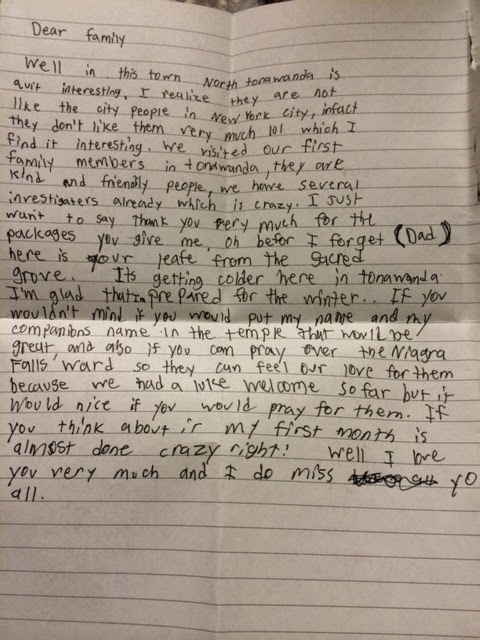 Dear family
Well in this town North tonawanda is
quit interesting, I realize they are not
like the city people in New York city, infact
they don't like them very much lol which I
find it interesting. We visited our first
family members in tonawanda, they are
kind and friendly people, we have several
investigaters already which is crazy. I just
want to say thank you very much for the
packages you give me, oh befor I forget (Dad)
here is your leafe from the sacred
grove. Its getting colder here in tonawanda.
I'm glad that Im prepared for the winter.. If you
wouldn't mind if you would put my name and my
companions name in the temple that would be
great, and also if you can pray over the Niagra
Falls ward so they can feel our love for them
because we had a luke welcome so far but it
would nice if you would pray for them. If
you think about it my first month is
almost done crazy right! Well I love
you very much and I do miss yo
all.